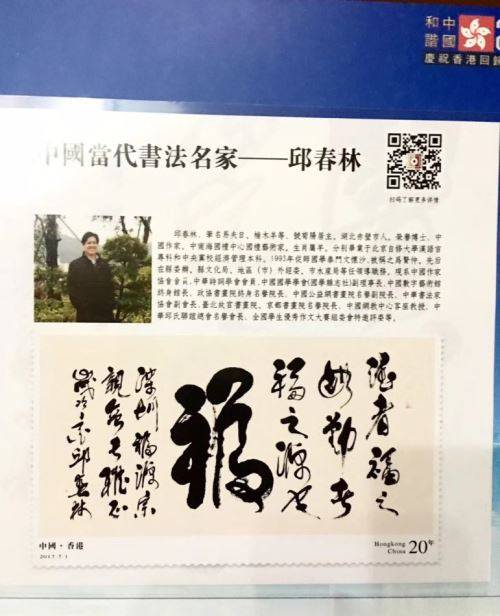 和諧
中國
慶祝香港回歸
中國當代書法名家——邱春林
扫码了解更多详情
邱春林、筆名易夫日、楠木羊等、號菊陽居生。湖北赤壁市人。榮譽博士、中
國作家。中南海國禮中心國禮藝術家。生肖屬羊。分别畢業于北京自修大學漢語言
專科和中央黨校經濟管理本科。1993年從師國學泰鬥文懷沙,被稱之爲賢仲。先后
在縣委辦。縣文化局、地區(市)外經委、市水産局等任領導職務。現系中國作家
協會會員、中華詩詞學會會員、中國國學學會(國學縣志社)副理事長、中國數字藝術館
終身館長、政協書畫院終身名譽院長、中國公益網書畫院名譽副院長、中華書法家
協會副會長、臺北故宫書畫院、京都書畫院名譽院長、中國網教中心客座教授、中
華邱氏聯誼總會名譽會長、全國學生優秀作文大賽組委會特邀評委等。
德者福之
母勤者
福之源也
福
深圳福源宗
邱春林
中國·香港
2017.7.1
Hongkong
China 20年